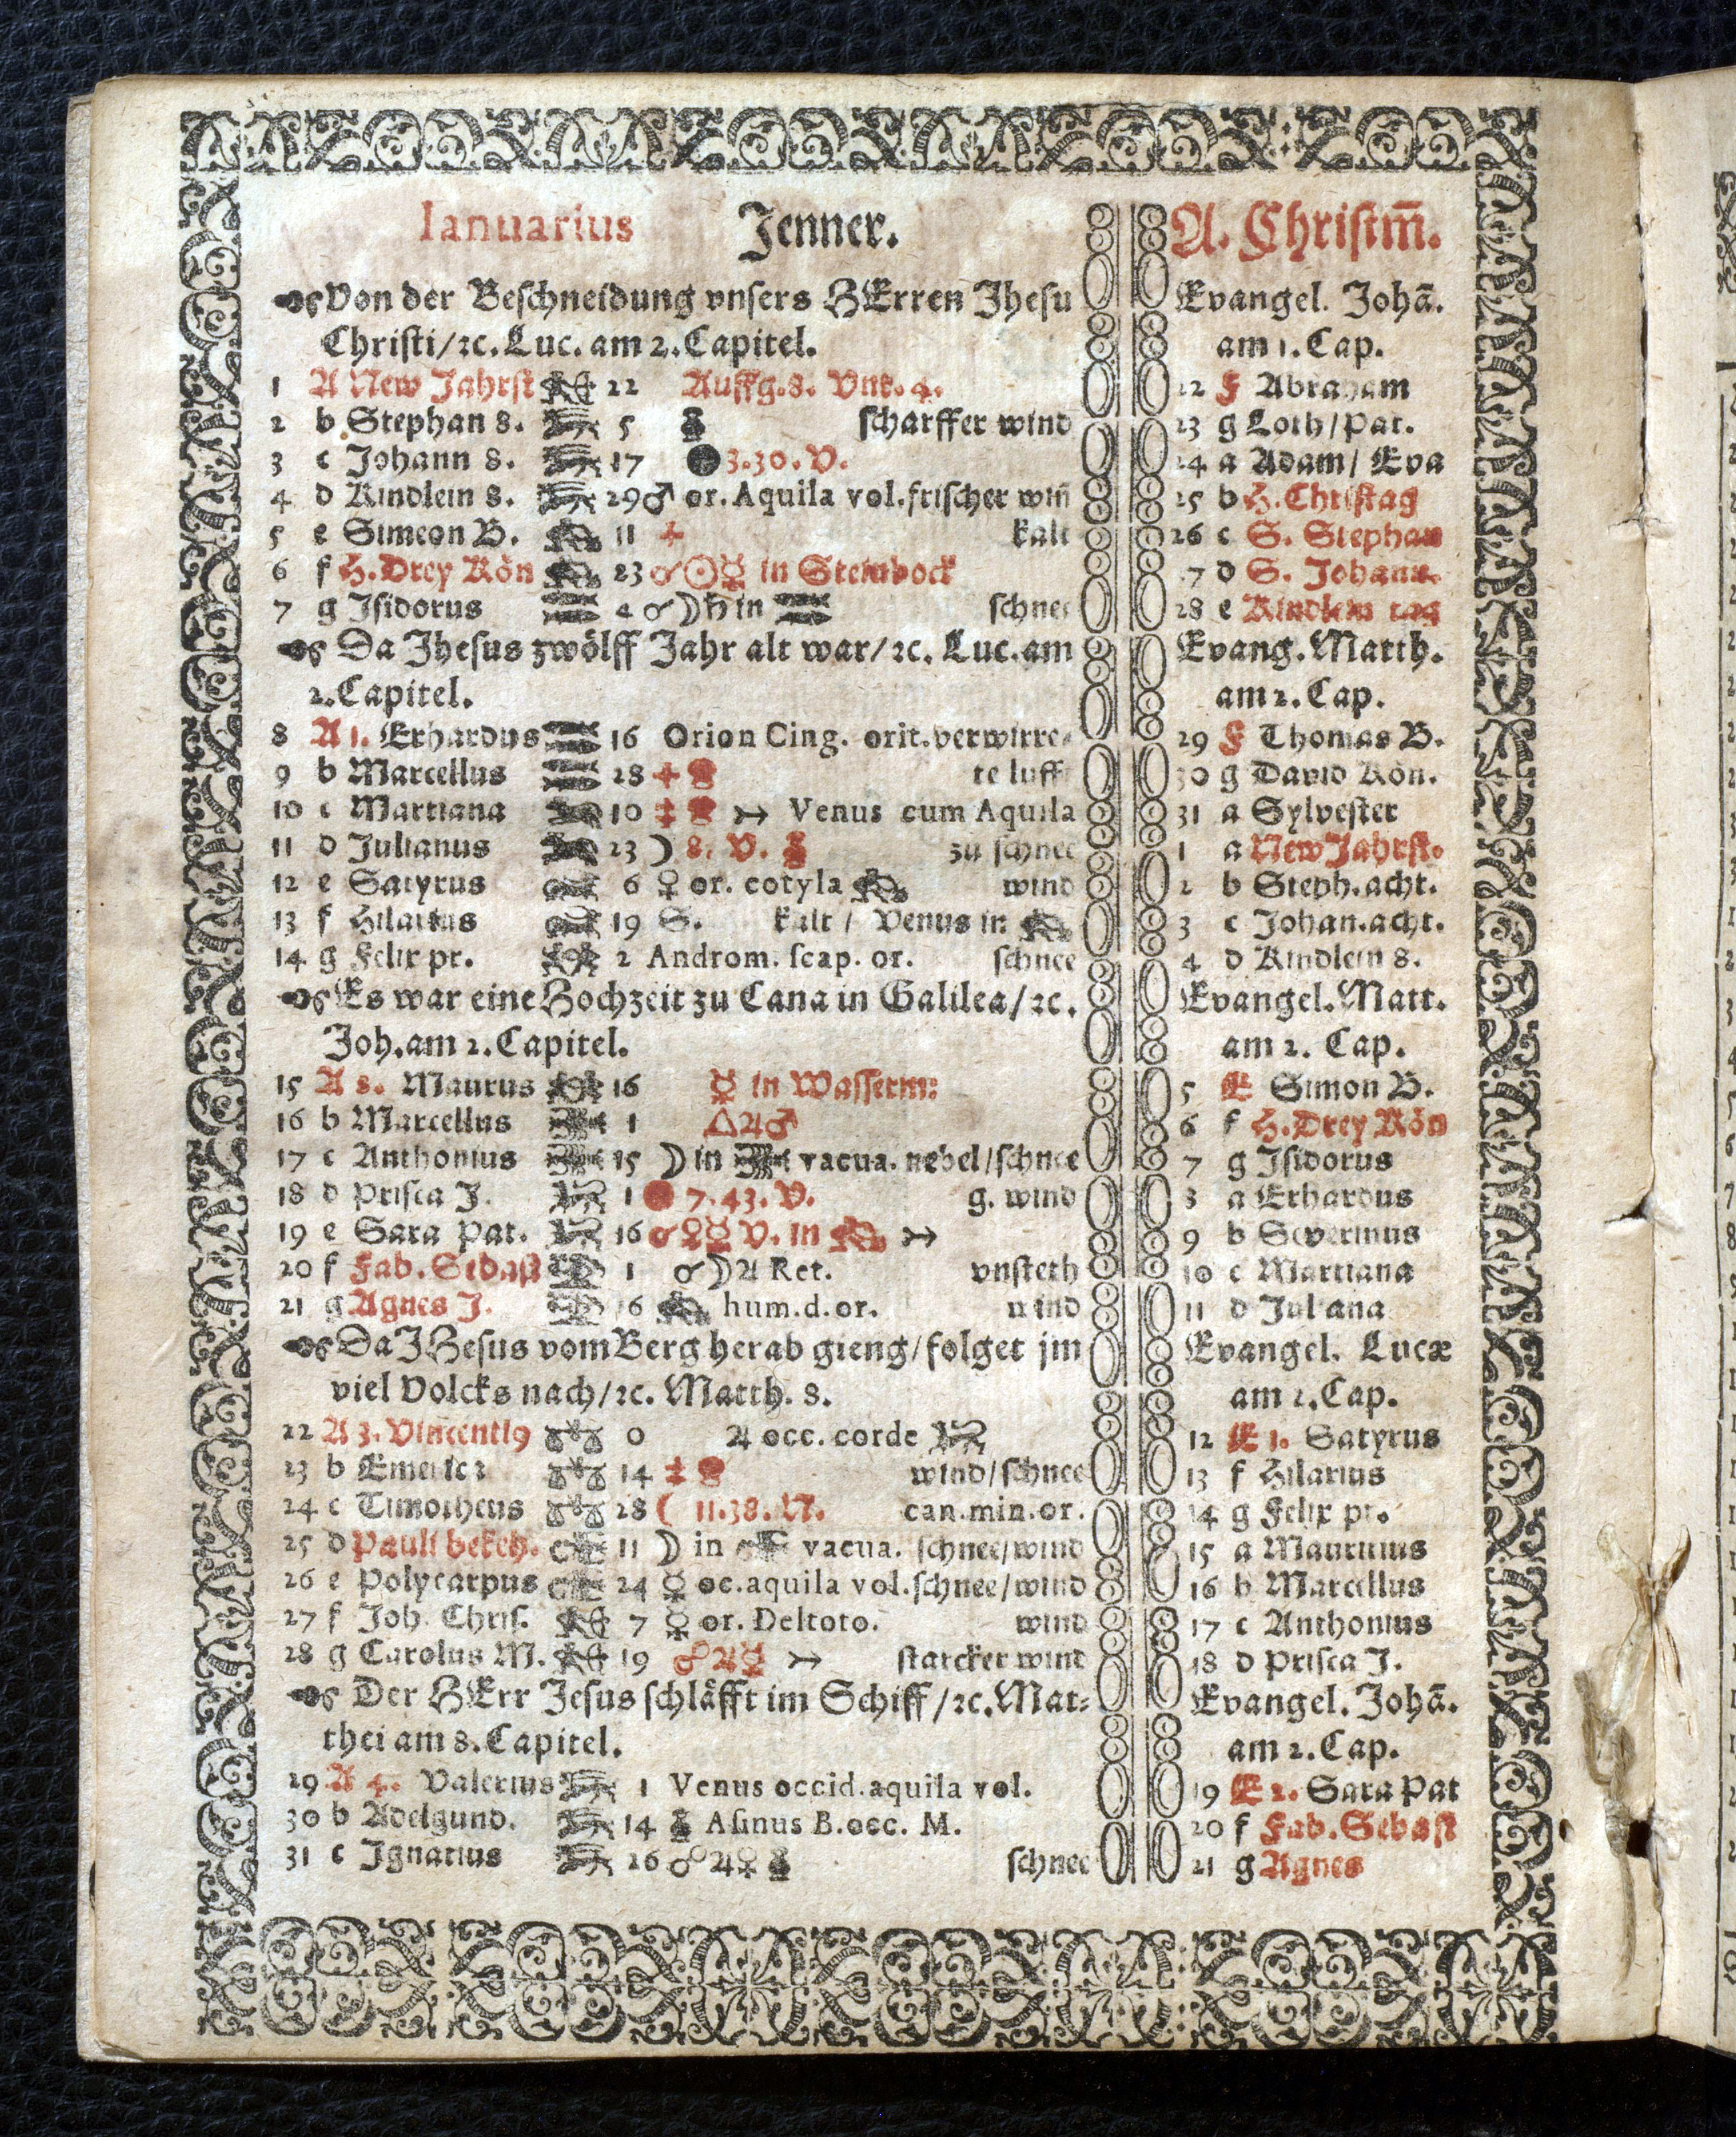 Ianuarius Jenner. A. Christm̄.
Von der Beschneidung vnsers HErren Jhesu
Christi/ꝛc. Luc. am 2. Capitel.
Evangel. Johā.
am 1. Cap.
1 A New Jahrst 22 Auffg. 8. Vnt. 4. 22 F Abraham
2 b Stephan 8. 5 scharffer wind 23 g Loth/Pat.
3 c Johann 8. 17 3.30. V. 24 a Adam/ Eva
4 d Kindlein 8. 29 ♂ or. Aquila vol. frischer win̄ 25 b H. Christag
5 e Simeon B. 11 kalt 26 c S. Stephan
6 f H. Drey Kön 23 ☌☉☿ in Steinbock 27 d S. Johann.
7 g Isidorus 4 ☌☽♄ in schnee 28 e Kindlein tag
Da Jhesus zwölff Jahr alt war/ꝛc. Luc. am
2. Capitel.
Evang. Matth.
am 2. Cap.
8 A 1. Erhardus 16 Orion Cing. orit. verwirre- 29 F Thomas B.
9 b Marcellus 28 te lufft 30 g David Kön.
10 c Martiana 10 Venus cum Aquila 31 a Sylvester
11 d Julianus 23 ☽ 8. V. zu schnee 1 a New Jahrst.
12 e Satyrus 6 ♀ or. cotyla wind 2 b Steph. acht.
13 f Hilarius 19 S. kalt / Venus in 3 c Johan. acht.
14 g Felix pr. 2 Androm. scap. or. schnee 4 d Kindlein 8.
Es war eine Hochzeit zu Cana in Galilea/ꝛc.
Joh. am 2. Capitel.
Evangel. Matt.
am 2. Cap.
15 A 2. Maurus 16 ☿ in Wasserm: 5 E Simon B.
16 b Marcellus 1 △♃♂ 6 f H. Drey Kön
17 c Anthonius 15 ☽ in vacua. nebel/schnee 7 g Isidorus
18 d Prisca J. 1 7.43. V. g. wind 8 a Erhardus
19 e Sara Pat. 16 ☌♀☿ V. in 9 b Severinus
20 f Fab. Sebast 1 ☌☽♃ Ret. vnsteth 10 c Martiana
21 g Agnes J. 16 hum. d. or. wind 11 d Juliana
Da JHesus vom Berg herab gieng/folget jm
viel Volcks nach/ꝛc. Matth. 8.
Evangel. Lucæ
am 2. Cap.
22 A 3. Vincenti9 0 ♃ occ. corde 12 E 1. Satyrus
23 b 14 wind/schnee 13 f Hilarius
24 c Timotheus 28 ☾ 11.38. N. can. min. or. 14 g Felix pr.
25 d Pauli bekeh. 11 ☽ in vacua. schnee/wind 15 a Mauritius
26 e Polycarpus 24 ☿ oc. aquila vol. schnee/wind 16 b Marcellus
27 f Joh. Chris. 7 ☿ or. Deltoto. wind 17 c Anthonius
28 g Carolus M. 19 ☍♃☿ starcker wind 18 d Prisca J.
Der HErr Jesus schläfft im Schiff/ꝛc. Mat-
thei am 8. Capitel.
Evangel. Johā.
am 2. Cap.
29 A 4. Valerius 1 Venus occid. aquila vol. 19 E 2. Sara Pat
30 b Adelgund. 14 Asinus B. occ. M. 20 f Fab. Sebast
31 c Ignatius 26 ☍♃♀ schnee 21 g Agnes